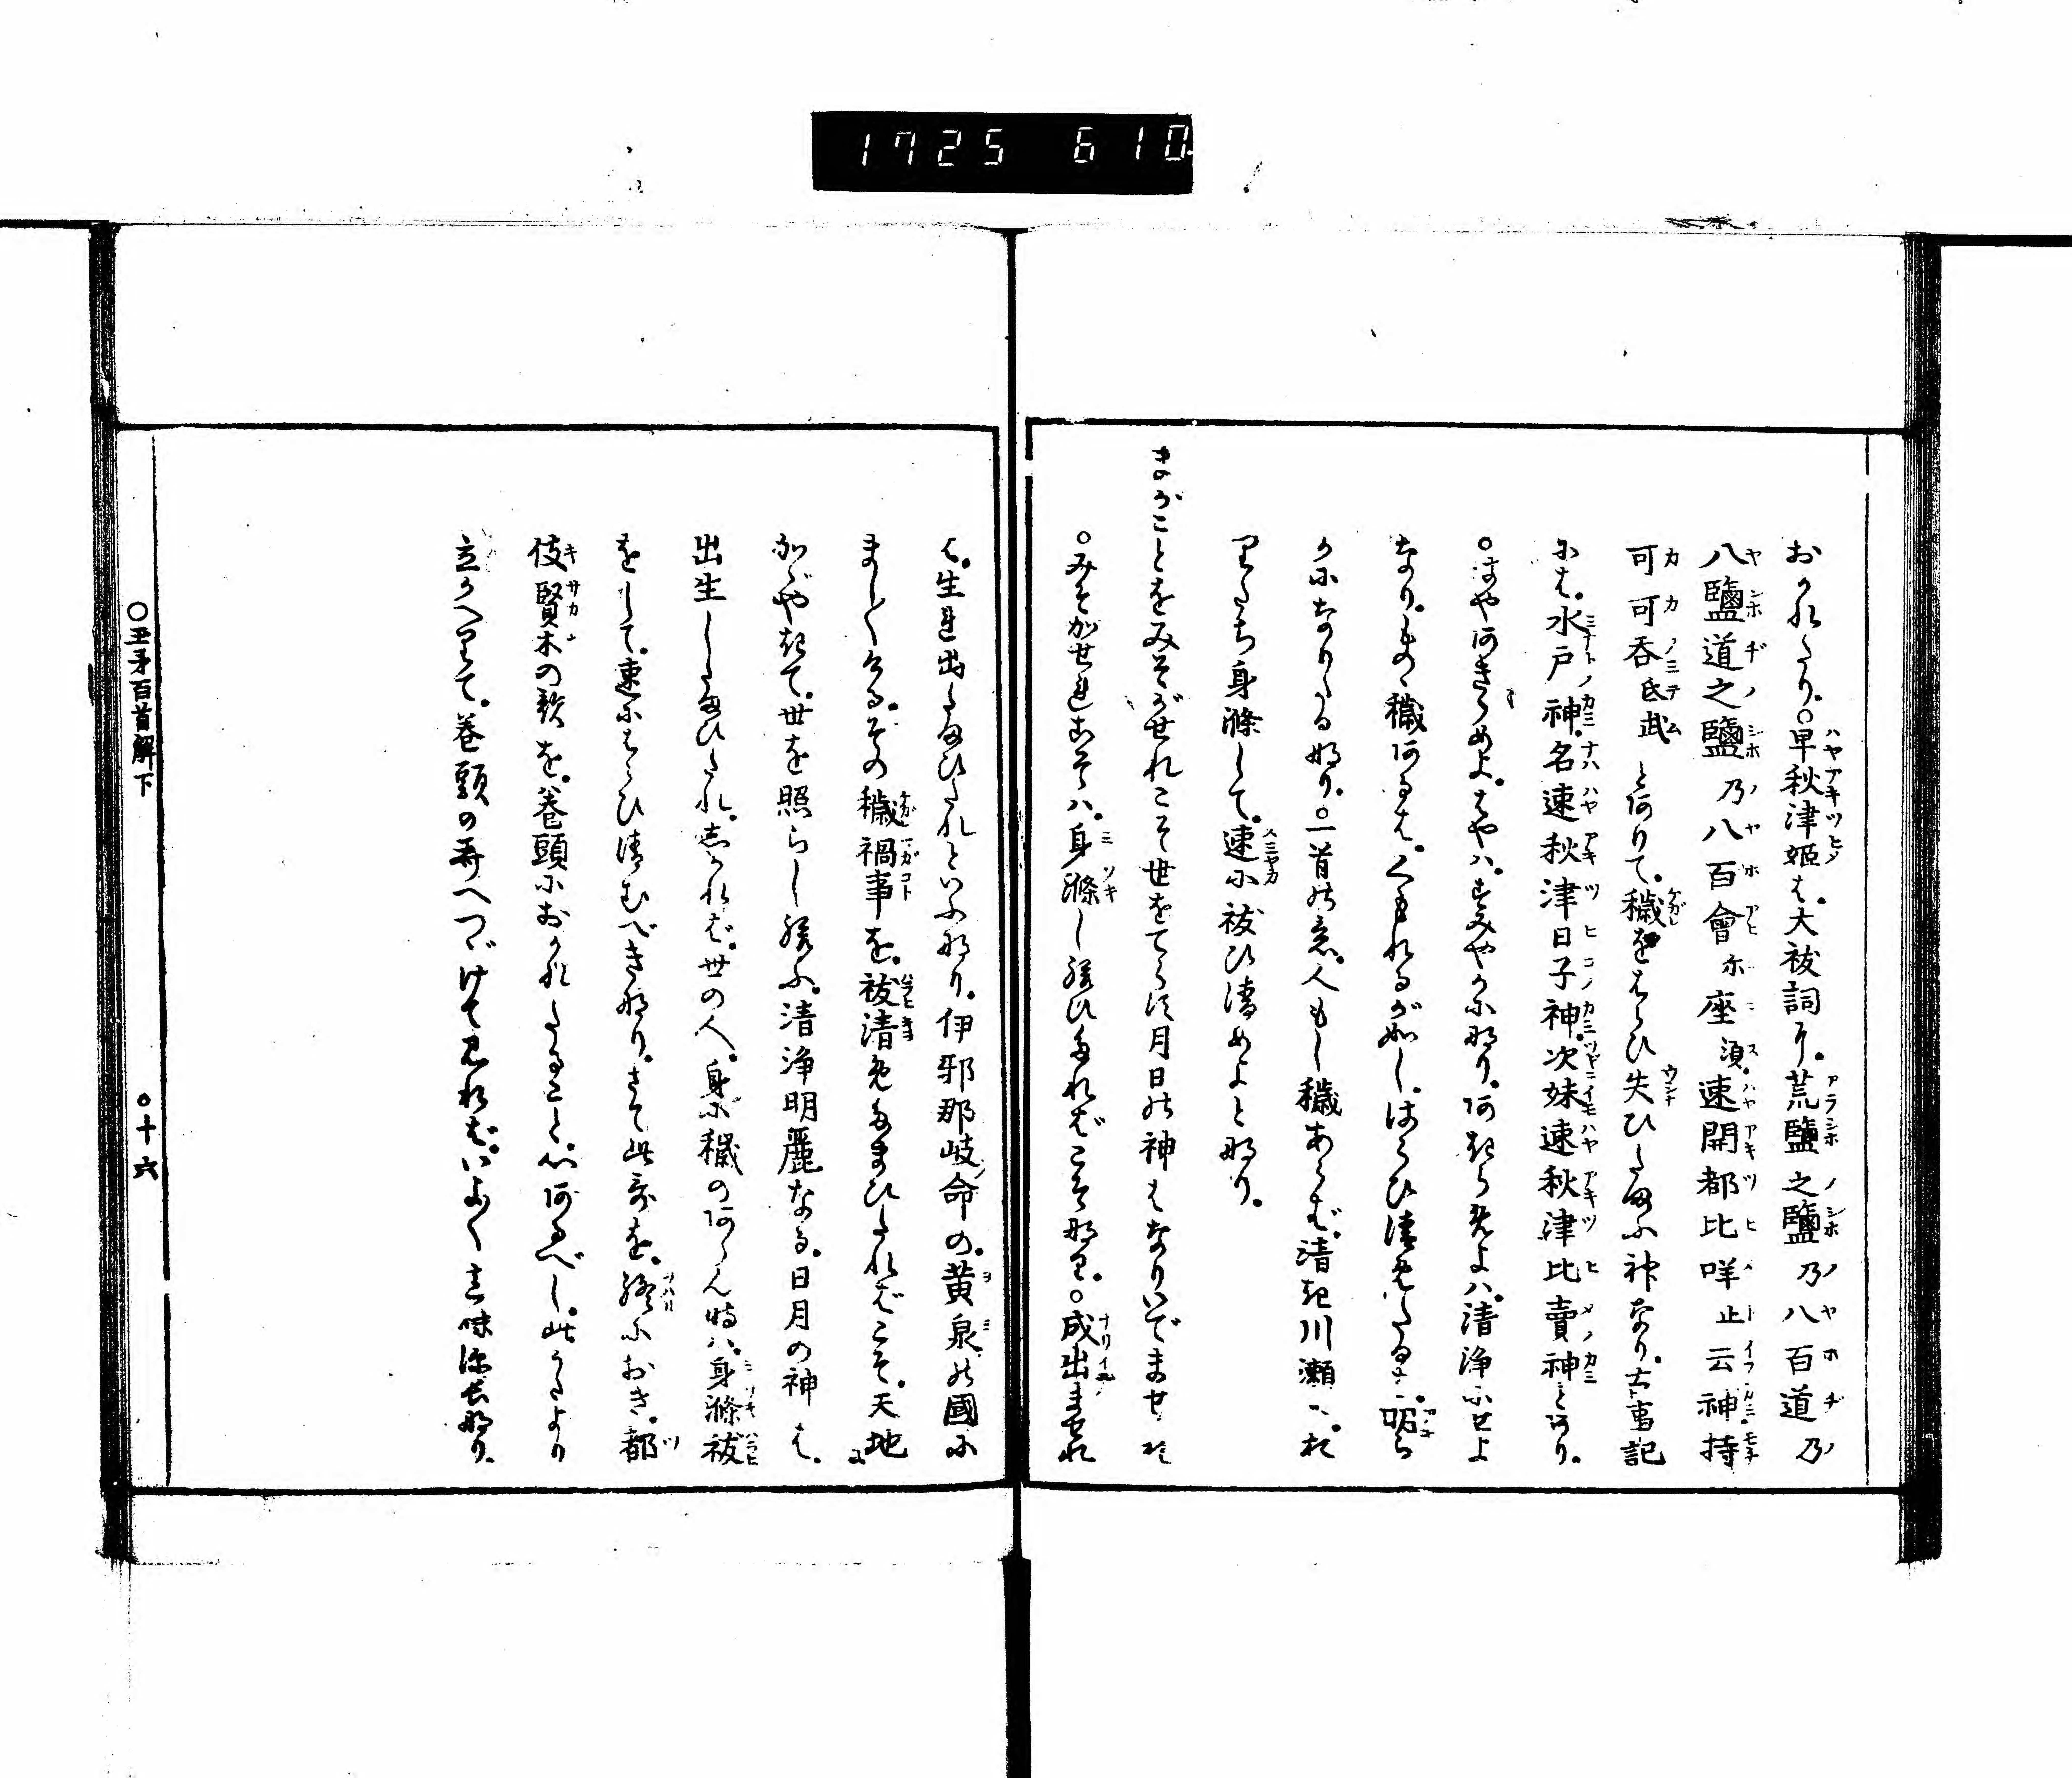 1725 610
おかれたり。○早秋津姫は。大祓詞に。荒鹽之鹽乃八百道乃
八鹽道之鹽乃八百會尓座須。速開都比咩止云神。持
可可呑氐武とありて。穢をはらひ失ひたまふ神なり。古事記
には。水戸神。名速秋津日子神。次妹速秋津比賣神とあり。
○はやあきらめよ。はやハ。すみやかになり。あきらめよハ。清浄にせよ
なり。もの穢あるは。くもれるが如し。はらひ清めたるは。明ら
かになりたるなり。○一首の意。人もし穢あらば。清き川瀬に。お
りたち身滌して。速に祓ひ清めよとなり。
まがことをみそがせれこそ世をてらす月日の神はなりいでませれ
○みそがせれこそハ。身滌し給ひたればこそなり。○成出ませれ
は。生れ出たまひたれといふなり。伊邪那岐命の。黄泉の國に
ましゝける。その穢禍事を。祓清めたまひたればこそ。天地
かゞやきて。世を照らし給ふ。清浄明麗なる。日月の神は。
出生したまひたれ。しかれば。世の人。身に穢のあらん時ハ。身滌祓
をして。速にはらひ清むべきなり。さて此哥を。終におき。都
伎賢木の歌を。巻頭におかれたること。心あるべし。此うたより
立かへりて。巻頭の哥へつゞけて見れば。いよゝ意味深長なり。
○玉矛百首解下
○十六